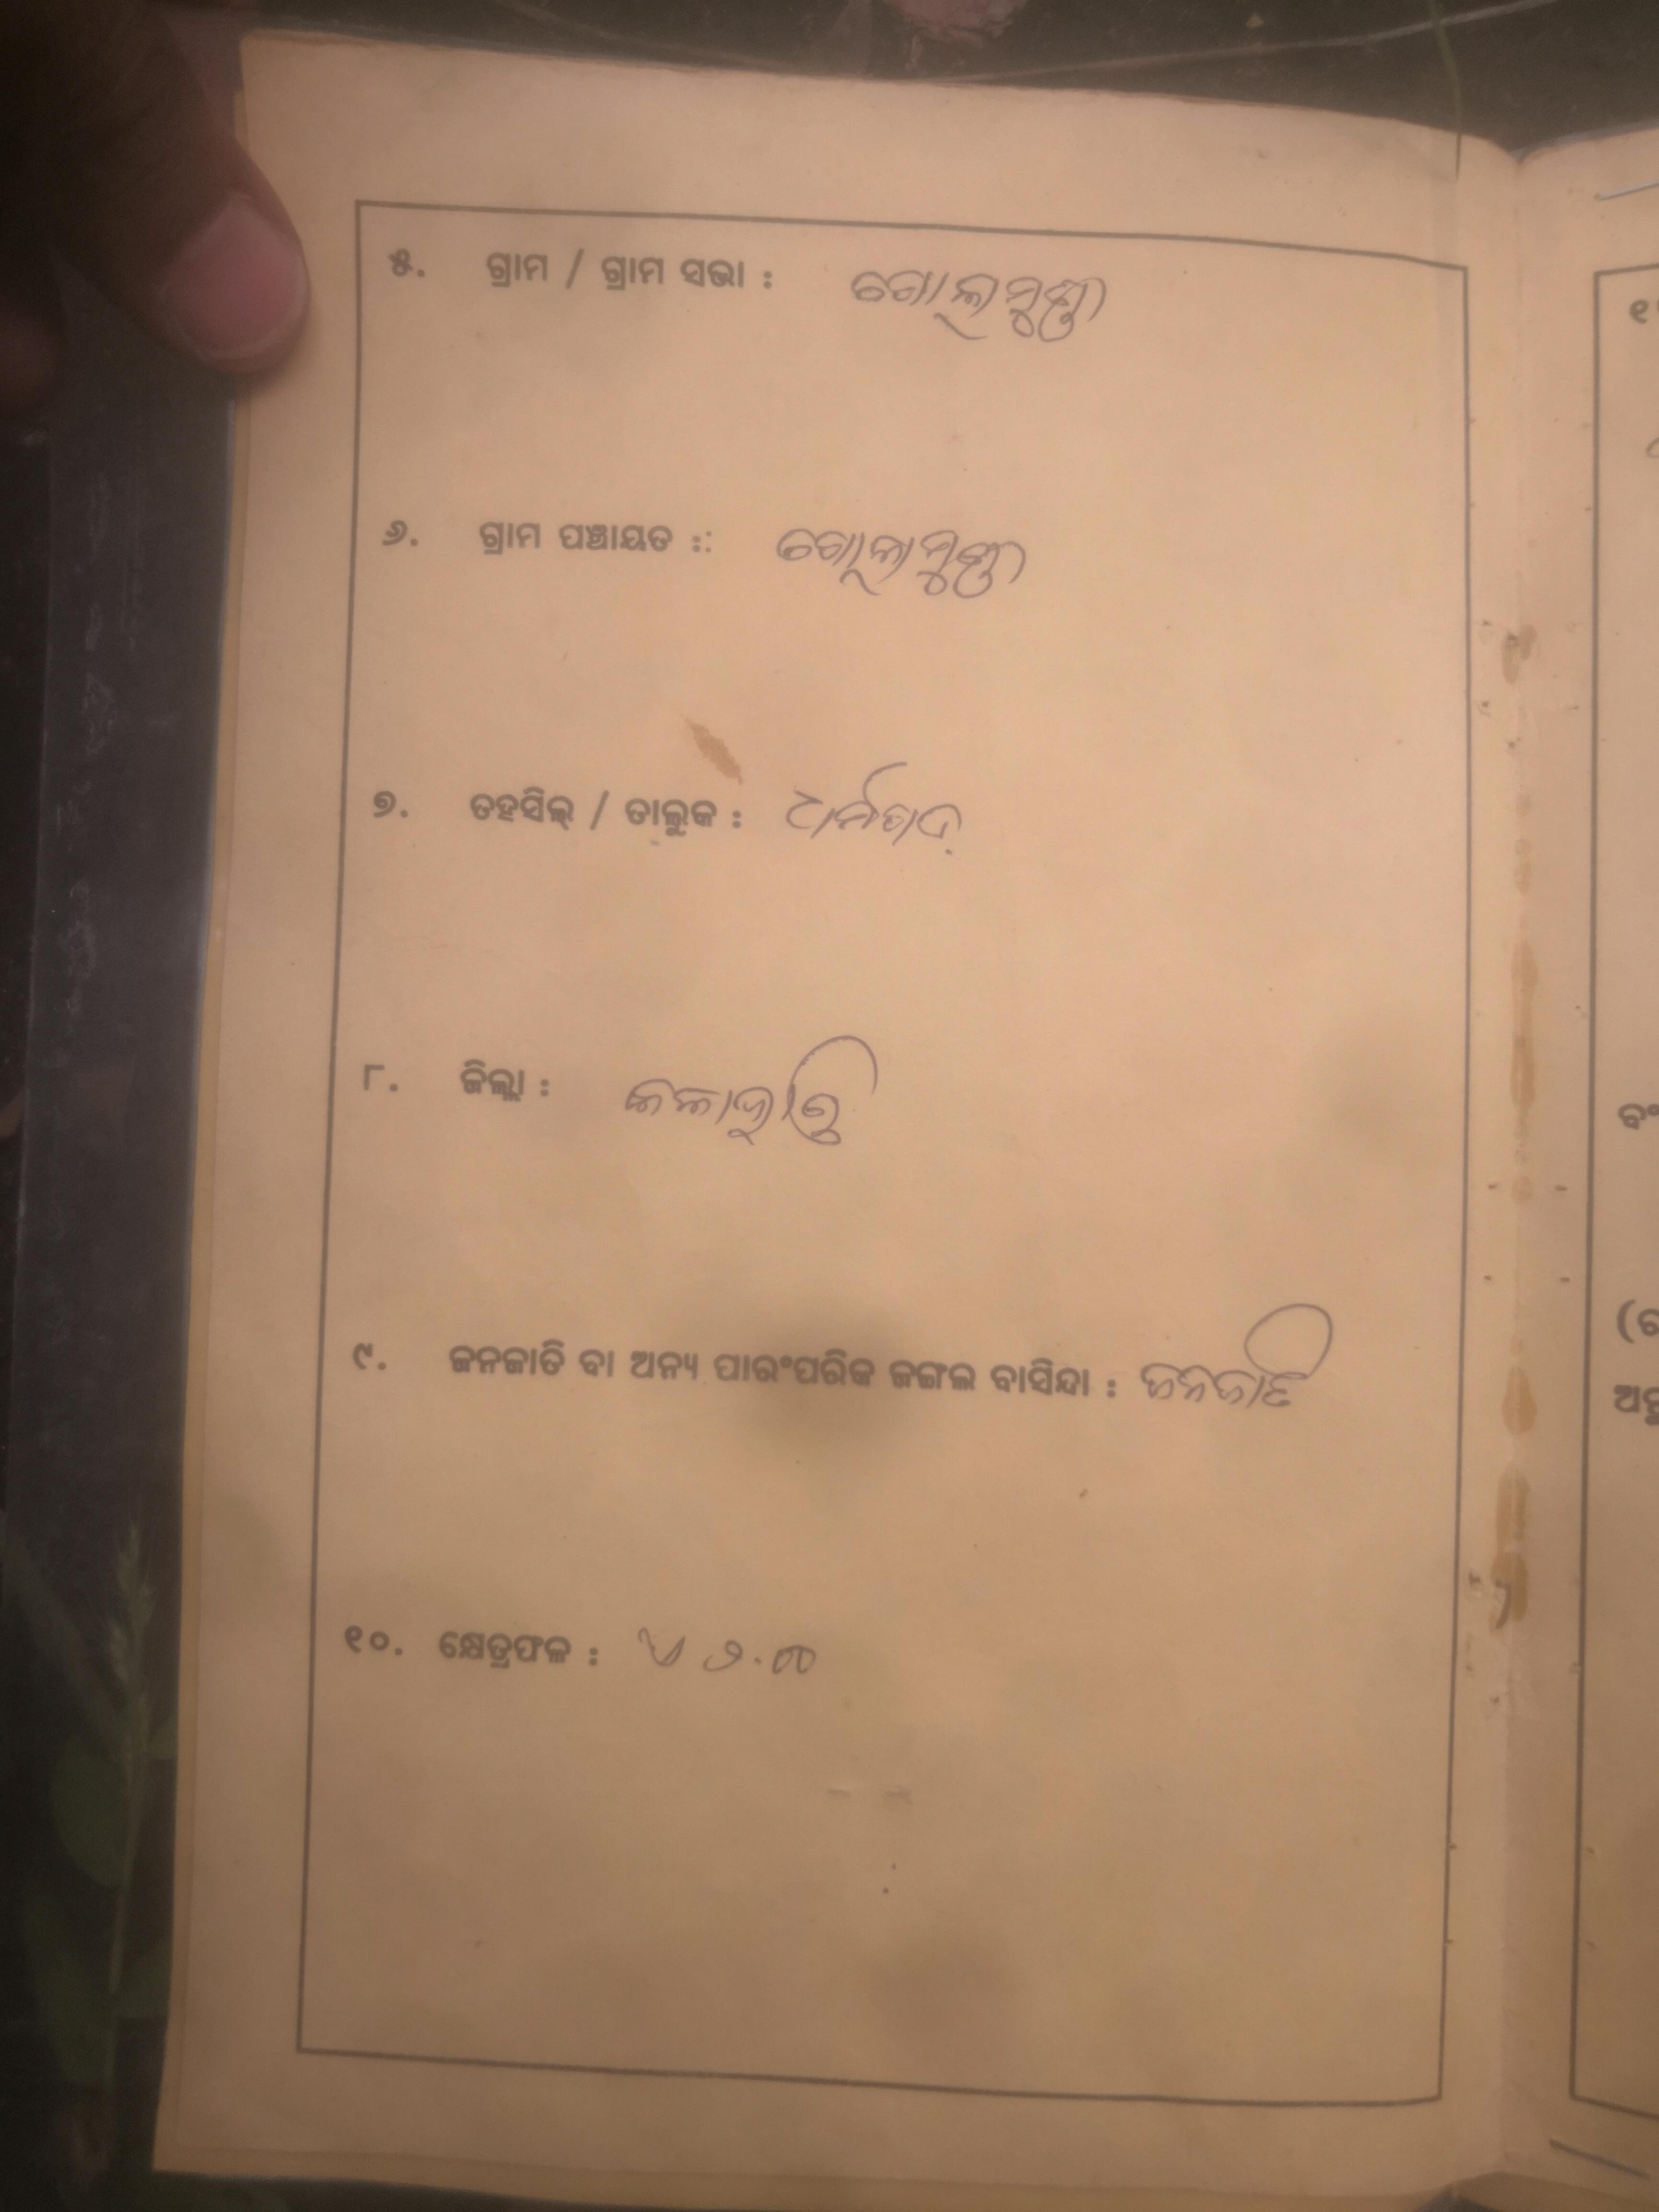 ୫. ଗ୍ରାମ / ଗ୍ରାମ ସଭା : ଗୋଲାମୁଣ୍ଡା
୬. ଗ୍ରାମ ପଞ୍ଚାୟତ :: ଗୋଲାମୁଣ୍ଡା
୭. ତହସିଲ୍ / ତାଲୁକ : ଧର୍ମଗଡ଼
୮. ଜିଲ୍ଲା : କଳାହାଣ୍ଡି
୯. ଜନଜାତି ବା ଅନ୍ୟ ପାରଂପରିକ ଜଙ୍ଗଲ ବାସିନ୍ଦା : ଜନଜାତି
୧୦. କ୍ଷେତ୍ରଫଳ : ଏ ୨.୦୦